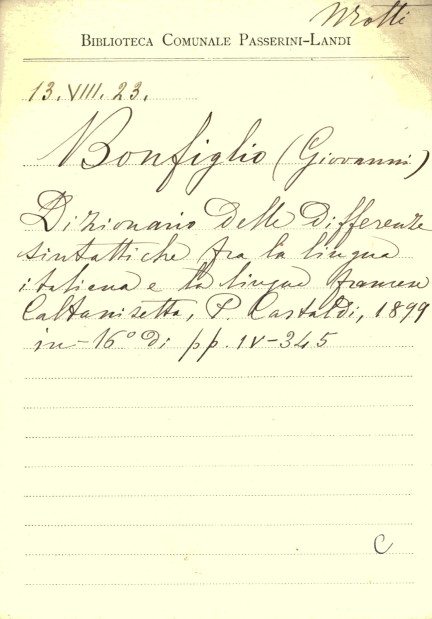 Motti
BIBLIOTECA COMUNALE PASSERINI-LANDI
13.VIII.23.
Bonfiglio (Giovanni)
Dizionario delle differenze
sintattiche fra la lingua
italiana e la lingua francese
Caltanisetta, P. Castaldi, 1899
in-16° di pp. IV-345
C